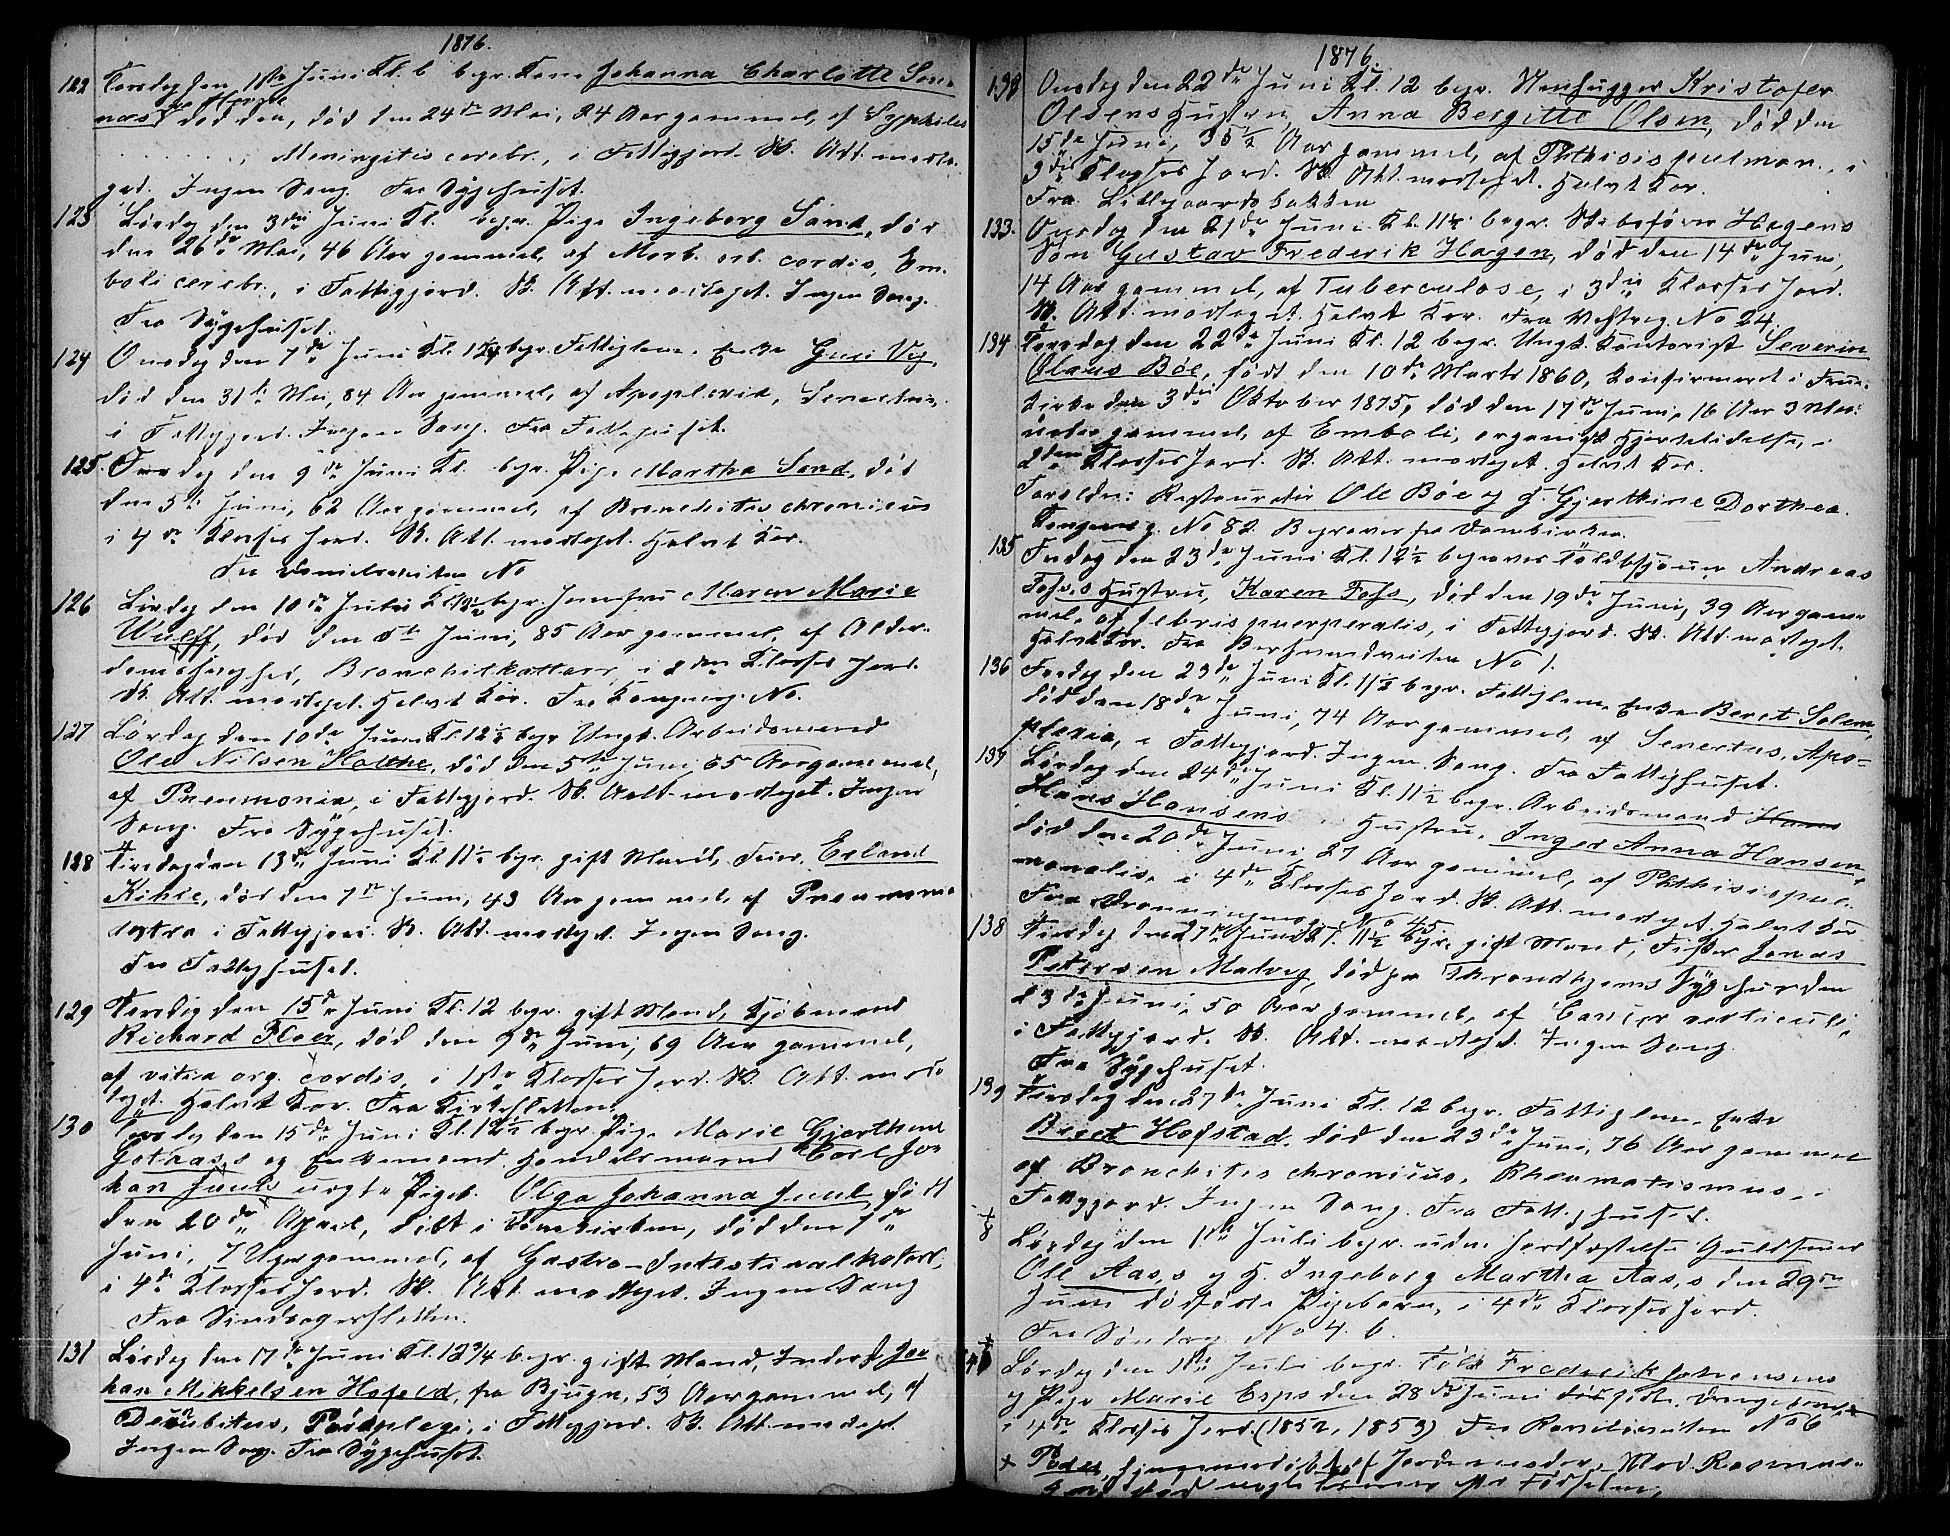 1876.
122 Torsdag den 1ste Juni Kl. 6 begr. Kone Johanna Charlotte Sem-
næs, død den, død den 24de Mai, 24 Aar gammel, af Syphilis
Meningitis cerebr., i Fattigjord. Sk. Att. modta-
get. Ingen Sang. Fra Sygehuset.
123 Lørdag den 3die Juni Kl. begr. Pige Ingeborg Sand, død
den 26de Mai, 46 Aar gammel, af Morb. org. cordis, Em-
boli cerebr., i Fattigjord. Sk. Att. modtaget. Ingen Sang.
Fra Sygehuset.
124 Onsdag den 7de Juni Kl. begr. Fattiglem, Enke Guri Vig,
død den 31te Mai, 84 Aar gammel, af Apoplexia, Senectus,
i Fattigjord. Ingen Sang. Fra Fattighuset.
125. Fredag den 9de Juni Kl. begr. Pige Martha Sand, død
den 5te Juni, 62 Aar gammel, af Bronchitis chronicus
i 4de Klasses Jord. Sk. Att. modtaget. Halvt Kor.
Fra Danielsveiten No
126 Lørdag den 10de Juni Kl. begr. Jomfru Maren Marie
Wulff, død den 5te Juni, 85 Aar gammel, af Alder-
domssvaghed, Bronchitkattarr, i 2den Klasses Jord.
Sk. Att. modtaget. Halvt Kor. Fra Kongensg. No.
127 Lørdag den 10de Juni Kl. 12½ begr. Ungk. Arbeidsmand
Ole Nilsen Holthe, død den 5te Juni, 65 Aar gammel,
af Pneumonia, i Fattigjord. Sk. Att. modtaget. Ingen
Sang. Fra Sygehuset.
128 Tirsdag den 13de Juni Kl. 11½ begr. gift Mand, Feier, Erland
Kihle, død den 7de Juni, 43 Aar gammel, af Pneumoni
dextra i Fattigjord. Sk. Att. modtaget. Ingen Sang.
Fra Fattighuset.
129 Torsdag den 15de Juni Kl. 12 begr. gift Mand, Kjøbmand
Richard Floer, død den 9de Juni, 69 Aar gammel,
af vitia org. cordis, i 1ste Klasses Jord. Sk. Att. mod-
taget. Halvt Kor. Fra Kirkesletten.
130 Torsdag den 15de Juni Kl. 12½ begr. Pige Marie Gjerthine
og Enkemand Handelsmand Carl Jo-
han Juuls uægte Pigeb. Olga Johanna Juul, født
den 20de April, døbt i Domkirken, død den 7de
Juni, 7 Uger gammel, af Gastro-Intestinalkatarr,
i 4de Klasses Jord. Sk. Att. modtaget. Ingen Sang
Fra Sindsagersletten.
131 Lørdag den 17de Juni Kl. 12 3/4 begr. gift Mand, Inderst Jo-
han Mikkelsen Hofeld, fra Bjugn, 53 Aar gammel, af
Decubitus, Paraplegi, i Fattigjord. Sk. Att. modtaget.
Ingen Sang. Fra Sygehuset.
1876.
132 Onsdag den 22de Juni Kl. 12 begr. Stenhugger Kristofer
Olsens Hustru, Anna Bergitte Olsen, død den
15de Juni, 36½ Aar gammel, af Phthisis pulmon., i
3die Klasses Jord. Sk. Att. modtaget. Halvt Kor.
Fra Lillegaardsbakken
133. Onsdag den 21de Juni Kl. 11½ begr. Skibsfører Hagens
Søn Gustav Frederik Hagen, død den 14de Juni,
14 Aar gammel, af Tuberculose, i 3die Klasses Jord.
Sk. Att. modtaget. Halvt Kor. Fra No 24.
134 Torsdag den 22de Juni Kl. 12 begr. Ungk. Kontorist Severin
Olaus Böe, født den 10de Marts 1860, konfirmeret i Frue-
Kirke den 3die Oktober 1875, død den 17de Juni, 16 Aar 3 Maa-
neder gammel, af Emboli, organisk Hjertelidelse, i
2den Klasses Jord. Sk. Att. modtaget. Halvt Kor.
Foreldre: Restauratör Ole Böe og H. Gjerthine Dorthea.
Kongensg. No 82. Begraves fra Domkirken.
135 Fredag den 23de Juni Kl. 12½ begraves Toldbetjent Andreas
Foss,s Hustru, Karen Foss, død den 19de Juni, 39 Aar gam-
mel, af febris puerperalis, i Fattigjord. Sk. Att. modtaget.
Halvt Kor. Fra No 1.
136 Fredag den 23de Juni Kl. 11½ begr. Fattiglem, Enke Beret Solem,
død den 18de Juni, 74 Aar gammel, af Senectus, Apo-
plexia, i Fattigjord. Ingen Sang. Fra Fattighuset.
137 Lørdag den 24de Juni Kl. 11½ begr. Arbeidsmand Hans
Hans Hansens Hustru, Inger Anna Hansen,
død den 20de Juni 27 Aar gammel, af Phthisis pul-
monalis, i 4de Klasses Jord. Sk. Att. modtaget. Halvt Kor
Fra Dronningensg. No 45.
138 Tirsdag den 27de Juni Kl. 11½ begr. gift Mand, Fisker Jonas
Petersen Malvig, død paa Throndhjems Sygehus den
23de Juni, 50 Aar gammel, af Cancer
i Fattigjord. Sk. Att. modtaget. Ingen Sang.
Fra Sygehuset.
139 Tirsdag den 27de Juni Kl. 12 begr. Fattiglem, Enke
Beret Hofstad, død den 23de Juni, 76 Aar gammel
af Bronchites chronicus, Rheumatismus, i
Fattigjord. Ingen Sang. Fra Fattighuset.
Lørdag den 1ste Juli begr. uden Jordfæstelse Guldsmed
Ole Aas,s og H. Ingeborg Martha Aas,s den 29de
Juni dødfødte Pigebarn, i 4de Klasses Jord.
Fra Søndreg. No 4. b.
Lørdag den 1ste Juli begr. Frederik Johansens
og Pige Marie Esps den 28de Juni dødfødte, Drengebarn
i 4de Klasses Jord. (1852, 1853) Fra No 6
+ Peder, hjemmedøbt af Jordemoder, Mad. Rasmus-
sen, død nogle Timer efter Fødselen.